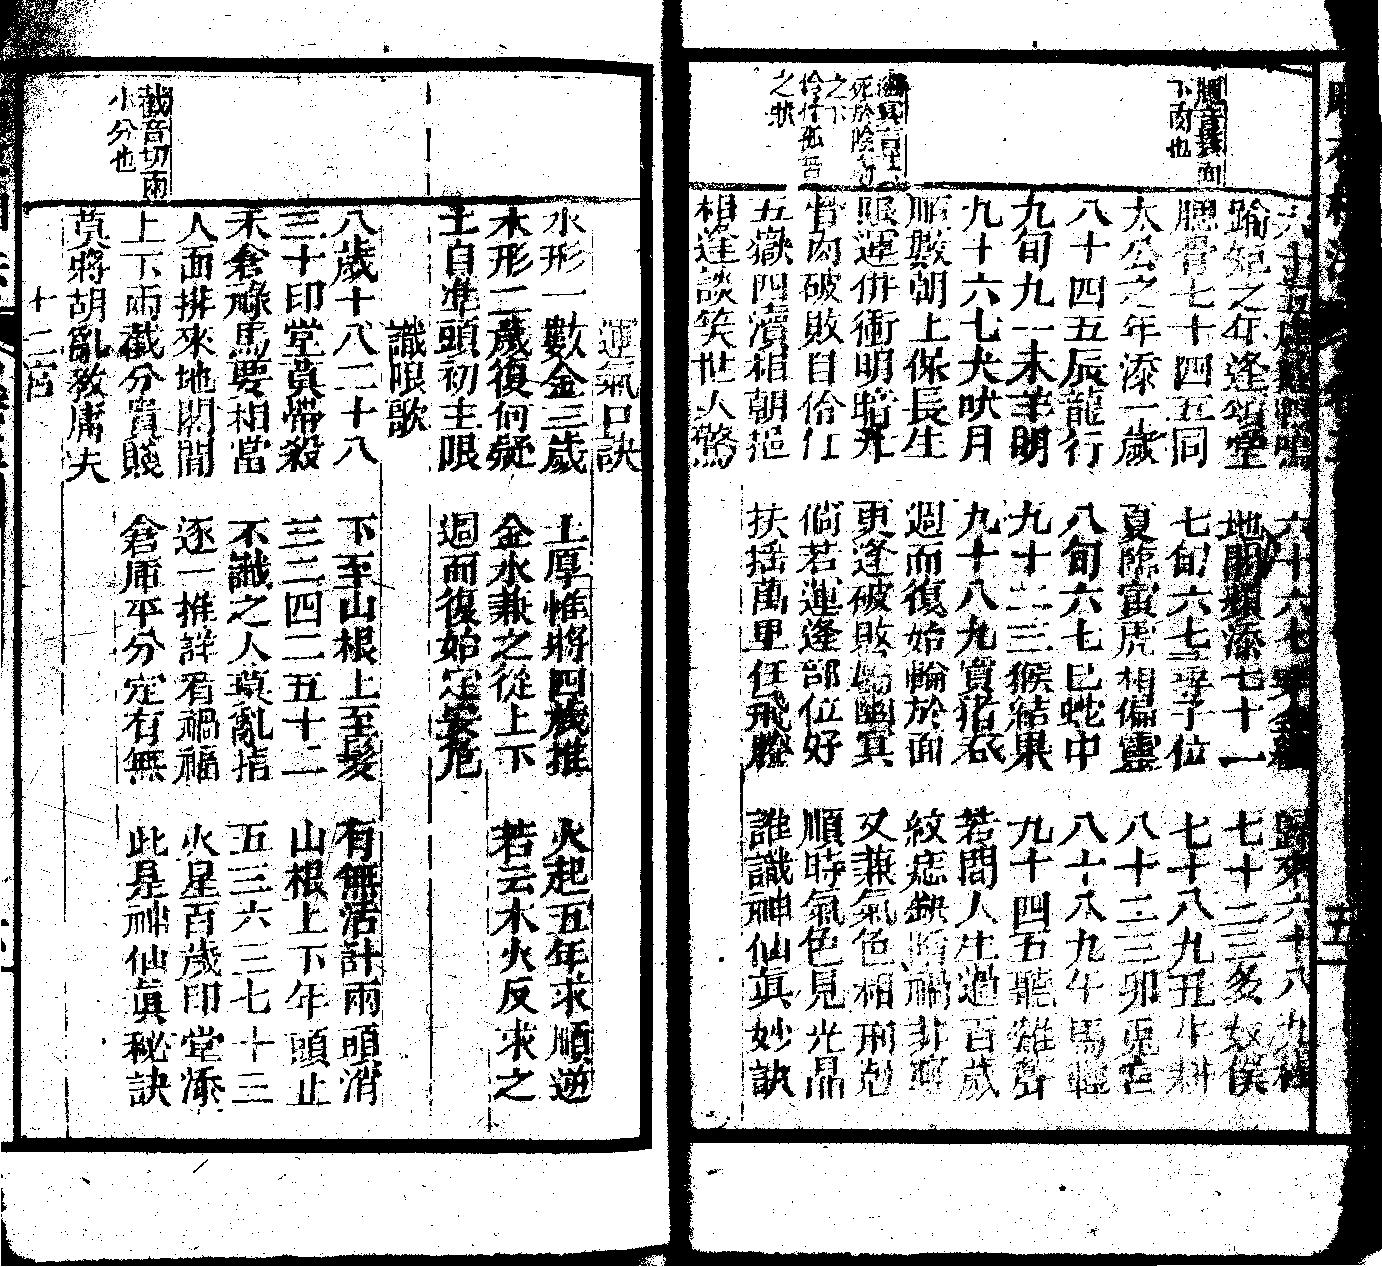 腮音鰓面
下肉也
死於陰司
之下
伶仃孤苦
之狀
六十六七穿金縷 歸來六十八九程
踰矩之年逢頌堂 地閣頻添七十一 七十二三多奴僕
腮骨七十四五同 七旬六七尋子位 七十八九丑牛耕
太公之年添一歲 夏臨寅虎相偏靈 八十二三卯兎宮
八十四五辰龍行 八旬六七巳蛇中 八十八九午馬輕
九旬九一未羊明 九十二三猴結果 九十四五聽雞聲
九十六七犬吠月 九十八九買猪吞 若問人生過百歲
順數朝上保長生 週而復始輪於面 紋痣缺陷禍非輕
限運併衝明暗九 更逢破敗屬幽冥 又兼氣色相刑尅
骨肉破敗自伶仃 倘若運逢部位好 順時氣色見光晶
五嶽四瀆相朝挹 扶搖萬里任飛騰 誰識神仙眞妙訣
相逢談笑世人驚
五
截音切兩
小分也
運氣口訣
水形一數金三歲 土厚惟將四歲推 火起五年求順逆
木形二歲復何疑 金水兼之從上下 若云木火反求之
土自準頭初主限 週而復始定安危
識限歌
八歲十八二十八 下至山根上至髮 有無活計兩頭消
三十印堂莫帶殺 三二四二五十二 山根上下年頭止
禾倉祿馬要相當 不識之人莫亂指 五三六三七十三
人面排來地閣間 逐一推詳看禍福 火星百歲印堂添
上下兩截分貴賤 倉庫平分定有無 此是神仙眞秘訣
莫將胡亂教庸夫
十二宮